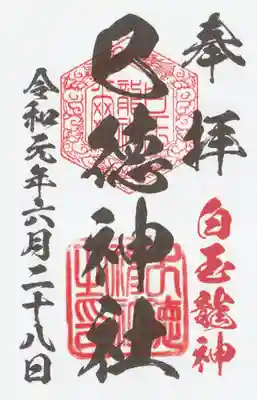 奉拝
白玉龍神
巳徳神社
令和元年六月二十八日